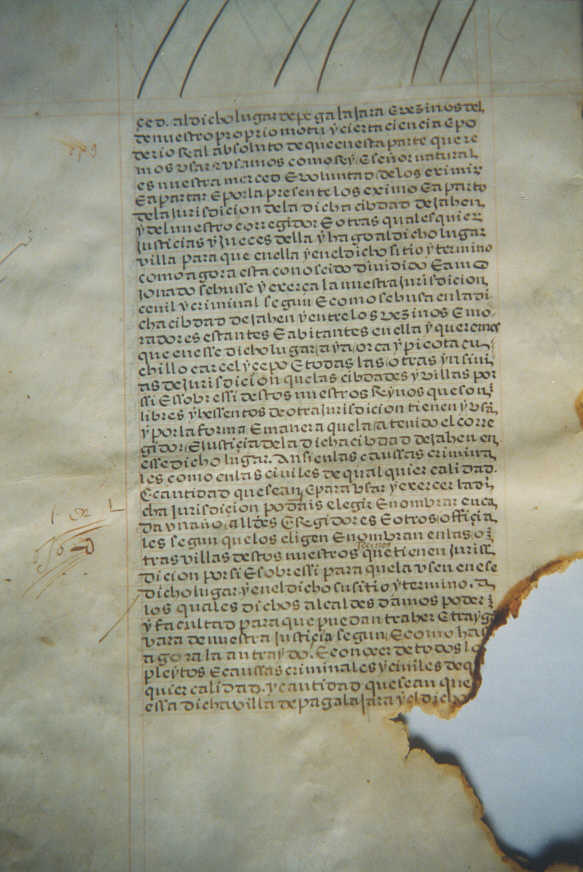 çed. al dicho lugar de pegalajara E vezinos del
de nuestro proprio motu y cierta ciencia E po
derio Real absoluto de que en esta parte quere
mos vsar E vsamos como Rey E señor natural
es nuestra merced E voluntad de los eximir
E apartar E por la presente los eximo E aparto
de la Jurisdicion de la dicha cibdad de Jahen
y del nuestro corregidor E otras qualesquier
Justicias y Jueces della y hago al dicho lugar
villa para que en ella y en el dicho sitio y termino
como agora esta conoscido diuidido E amo
Jonado se husse y exerça la nuestra Jurisdicion
ceuil y criminal segun E como se husa en la di
cha cibdad de Jahen y entre los vezinos E mo
radores estantes E abitantes en ella y queremos
que en esse dicho lugar aya orca y picota cu
chillo carcel y cepo E todas las otras ynsini
as de Jurisdicion que las cibdades y villas por
ssi E ssobre ssi destos nuestros Reynos que son
libres y hessentos de otra Jurisdicion tienen y vsã
y por la forma E manera que la a tenido el corre
gidor E Justicia de la dicha cibdad de Jahen en
esse dicho lugar. Ansi en las caussas crimina
les como en las ciuiles de qual quier calidad.
E cantidad que sean E para vsar y exercer la di
cha Jurisdicion podais elegir E nombrar en ca
da vn año alldes E Regidores E otros officia
les segun que los eligen E nombran en las o
tras villas destos nuestros Reinos que tienen Juriss
dicion por si E ssobre ssi para que la vsen en ese
dicho lugar y en el dicho su sitio y termino. A
los quales dichos alcaldes damos poder
y facultad para que puedan traher E traygã
vara de nuestra Justicia segun E como has
agora la an traydo. E conoxer de todos lo
pleytos E caussas criminales y ciuiles de q
quier calidad. y cantidad que sean que
essa dicha villa de pagalaJara y el dicho